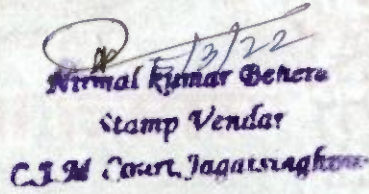 5/3/22
Nirmal Kumar Behera
Stamp Vendar
C.J.M Court, Jagatsingh